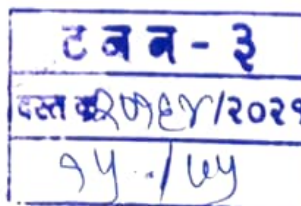 ट न न - ३
दस्त क्र २७६४/२०२१
१५ / ७५